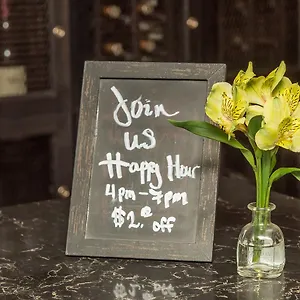 Join
us
Happy Hour
4pm - 7pm
$2. off